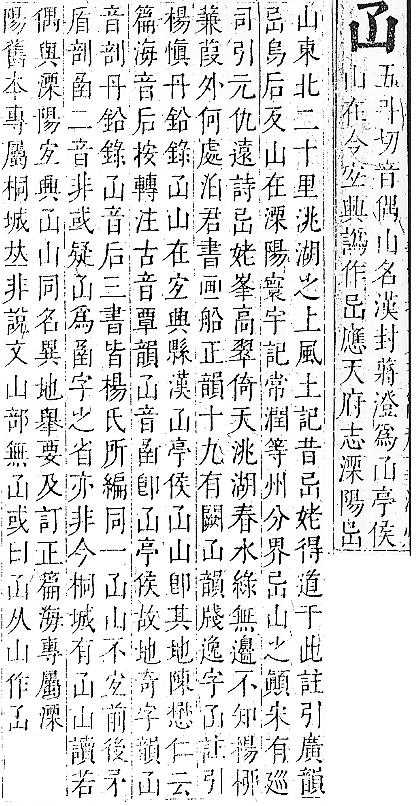 屲
五斗切音偶山名漢封蔣澄爲屲亭侯
山在今宜興譌作𡵆應天府志溧陽𡵆
山東北二十里洮湖之上風土記昔𡵆姥得道于此註引廣韻
𡵆烏后反山在溧陽寰宇記常潤等州分界𡵆山之顚宋有巡
司引元仇遠詩𡵆姥峯高翠倚天洮湖春水綠無邊不知楊栁
蒹葭外何處泊君書画船正韻十九有闕屲韻牋逸字屲註引
楊愼丹鉛錄屲山在宜興縣漢屲亭侯屲山卽其地陳懋仁云
篇海音后按轉注古音覃韻屲音凾卽屲亭侯故地奇字韻屲
音剖丹鉛錄屲音后三書皆楊氏所編同一屲山不宜前後矛
盾剖凾二音非或疑屲爲凾字之省亦非今桐城有屲山讀若
偶與溧陽宜興屲山同名異地舉要及訂正篇海專屬溧
陽舊本專屬桐城𠀤非說文山部無屲或曰屲从山作屲